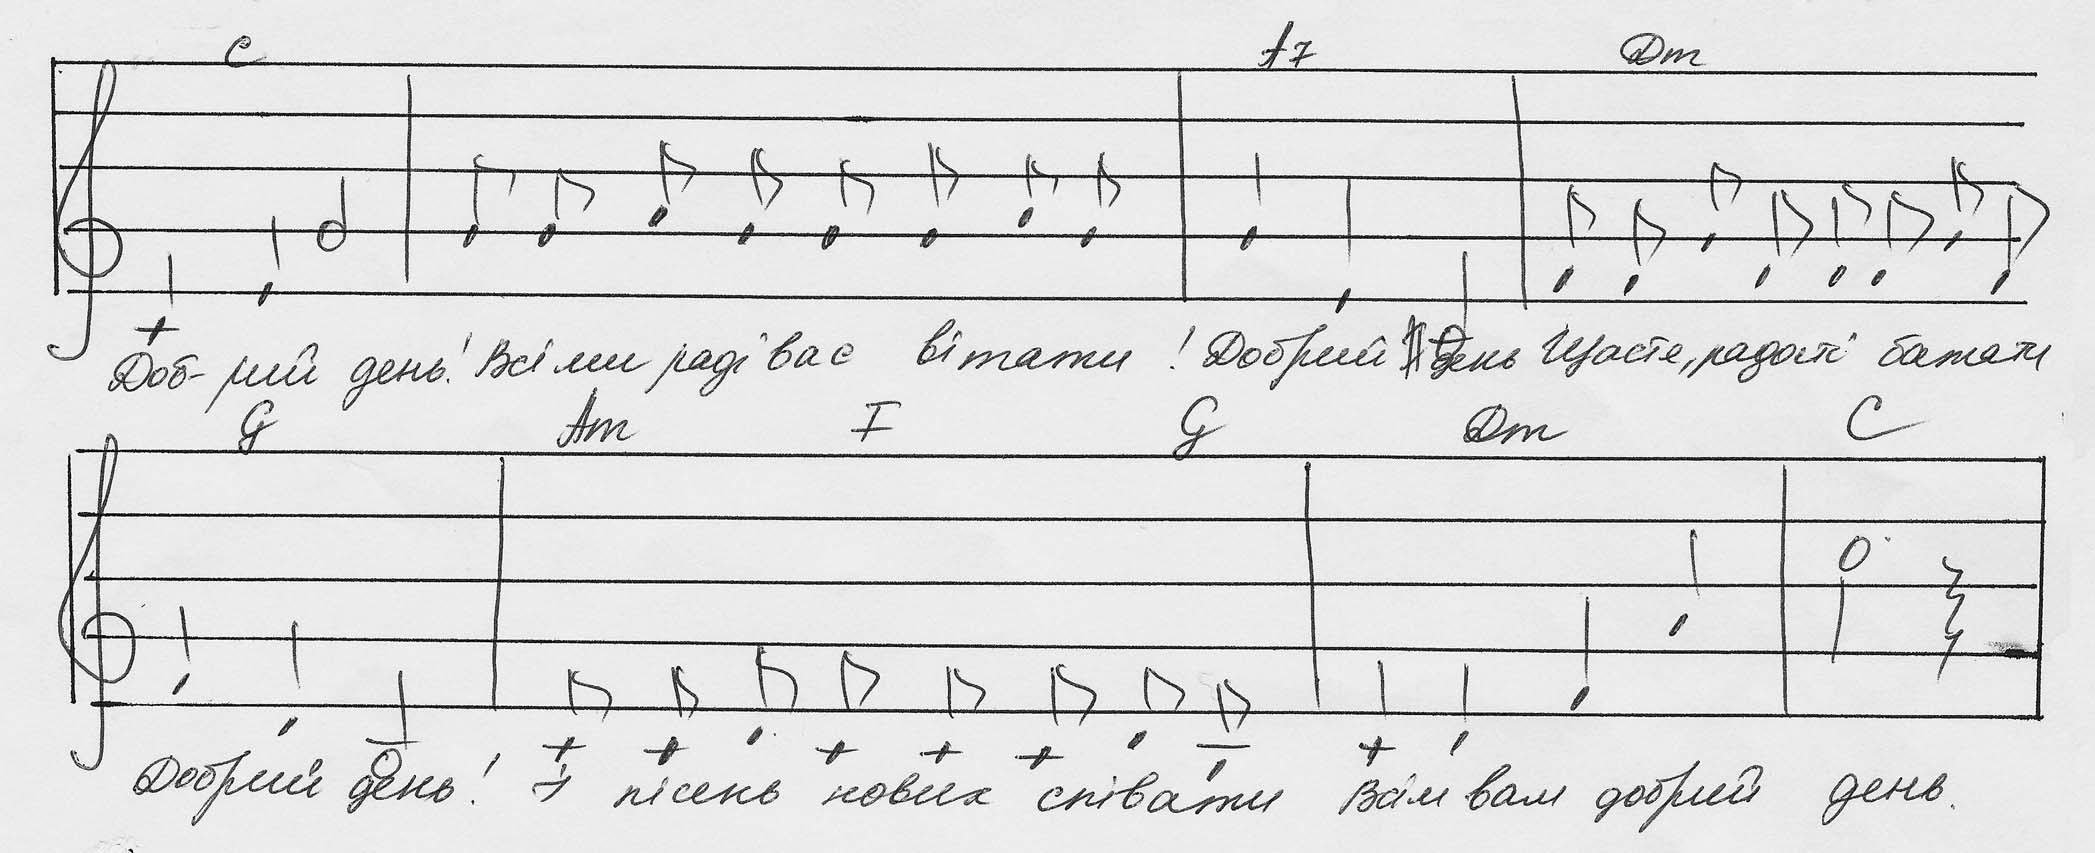 C A7 Dm
Доб-рий день! Всі ми раді вас вітати! Добрий день Щастя, радості бажати
G Am F G Dm C
Добрий день! І пісень нових співати Всім вам добрий день.